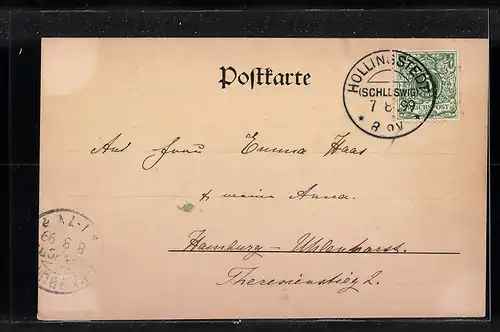 Postkarte
HOLLINGSTEDT
(SCHLESWIG)
7 8 99
8-9V
An Frau Emma Haas
& meine Anna.
Hamburg - Uhlenhorst.
Theresienstieg 2.
1-7V
8 8 99